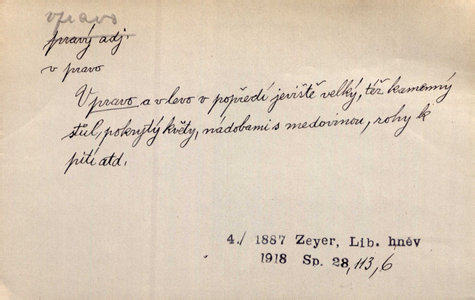 vpravo
pravý adj.
v pravo
Vpravo a vlevo v popředí jeviště velký, též kamenný
stůl, pokrytý květy, nádobami s medovinou, rohy k
pití atd.
4./ 1887 Zeyer, Lib. hněv
1918 Sp. 28, 113, 6